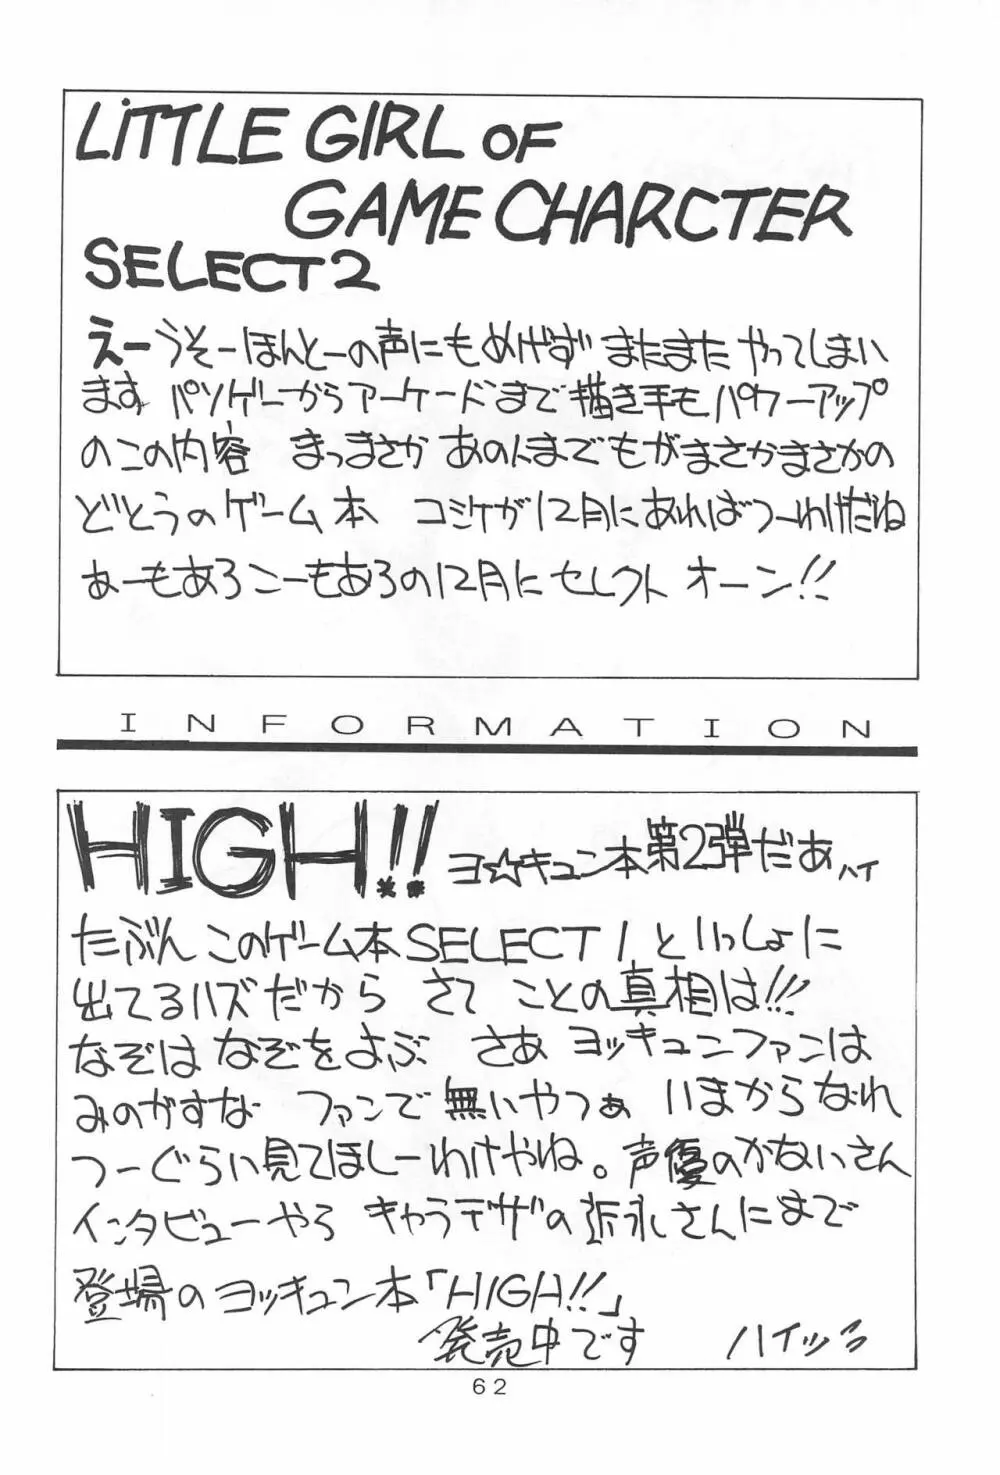 LiTTLE GIRL OF
GAME CHARCTER
SELECT2
えーうそーほんとーの声にもめげず またまた やってしまい
ます パソゲーからアーケードまで 描き手も パワーアップ
のこの内容 まっまさか あの人までもが まさかまさかの
どとうのゲーム本 コミケが12月にあればつーわけだね
あーもあろこーもあろの12月に セレクト オーン!!
INFORMATION
HIGH!! ヨ☆キュン本第2弾だあ ハイ
たぶん このゲーム本SELECT1 といっしょに
出てるハズだから さて ことの真相は!!!
なぞは なぞをよぶ さあ ヨッキュンファンは
みのがすな ファンで 無いやつぁ いまからなれ
つーぐらい見てほしーわけやね。声優のかないさん
インタビューやら キャラデザの 永さんにまで
登場の ヨッキュン本「HIGH!!」
発売中です ハイッ
62